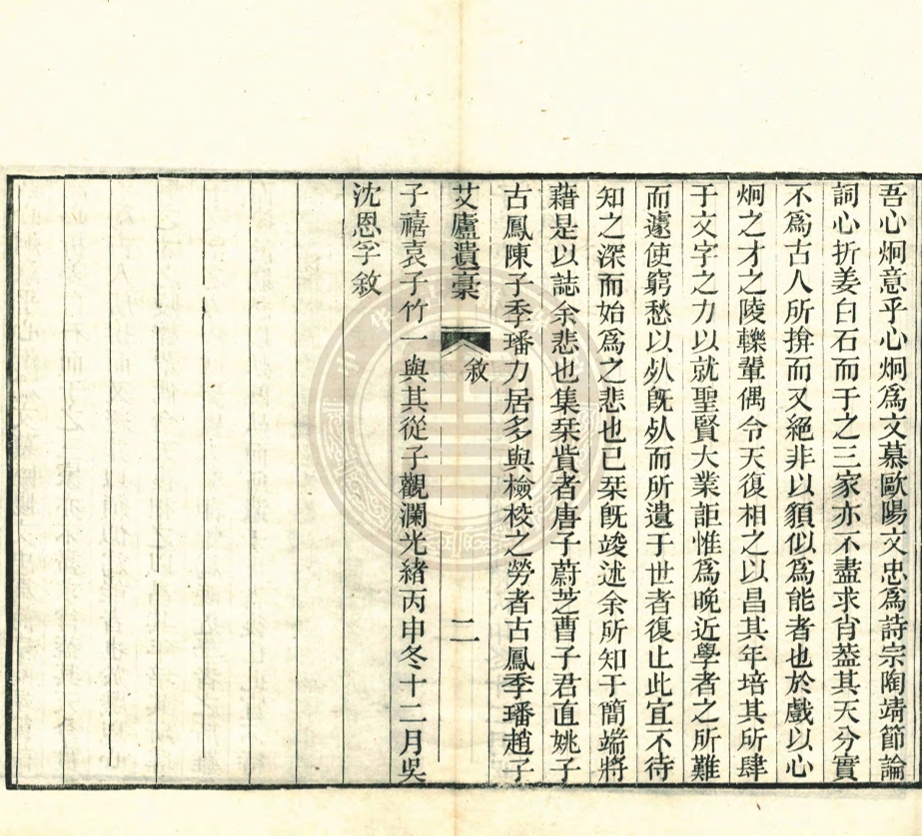 吾心炯意乎心炯爲文慕歐陽文忠爲詩宗陶靖節論
詞心折姜白石而于之三家亦不盡求肖葢其天分實
不爲古人所揜而又絕非以䫉似爲能者也於戲以心
炯之才之陵轢軰偶令天復相之以昌其年培其所肆
于文字之力以就聖賢大業詎惟爲晚近學者之所難
而遽使窮愁以㱙旣㱙而所遺于世者復止此宜不待
知之深而始爲之悲也已栞旣竣述余所知于簡端將
藉是以誌余悲也集栞貲者唐子蔚芝曹子君直姚子
古鳳陳子季璠力居多與檢校之勞者古鳳季璠趙子
艾廬遺稾
敘
二
子禧袁子竹一與其從子觀瀾光緒丙申冬十二月吳
沈恩孚敘